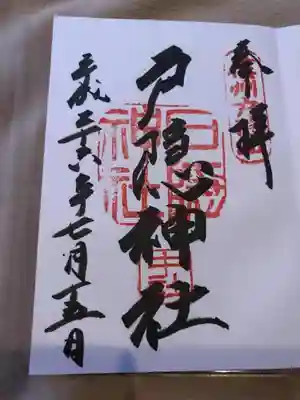 奉拝
戸隠神社
平成二十六年七月十五日